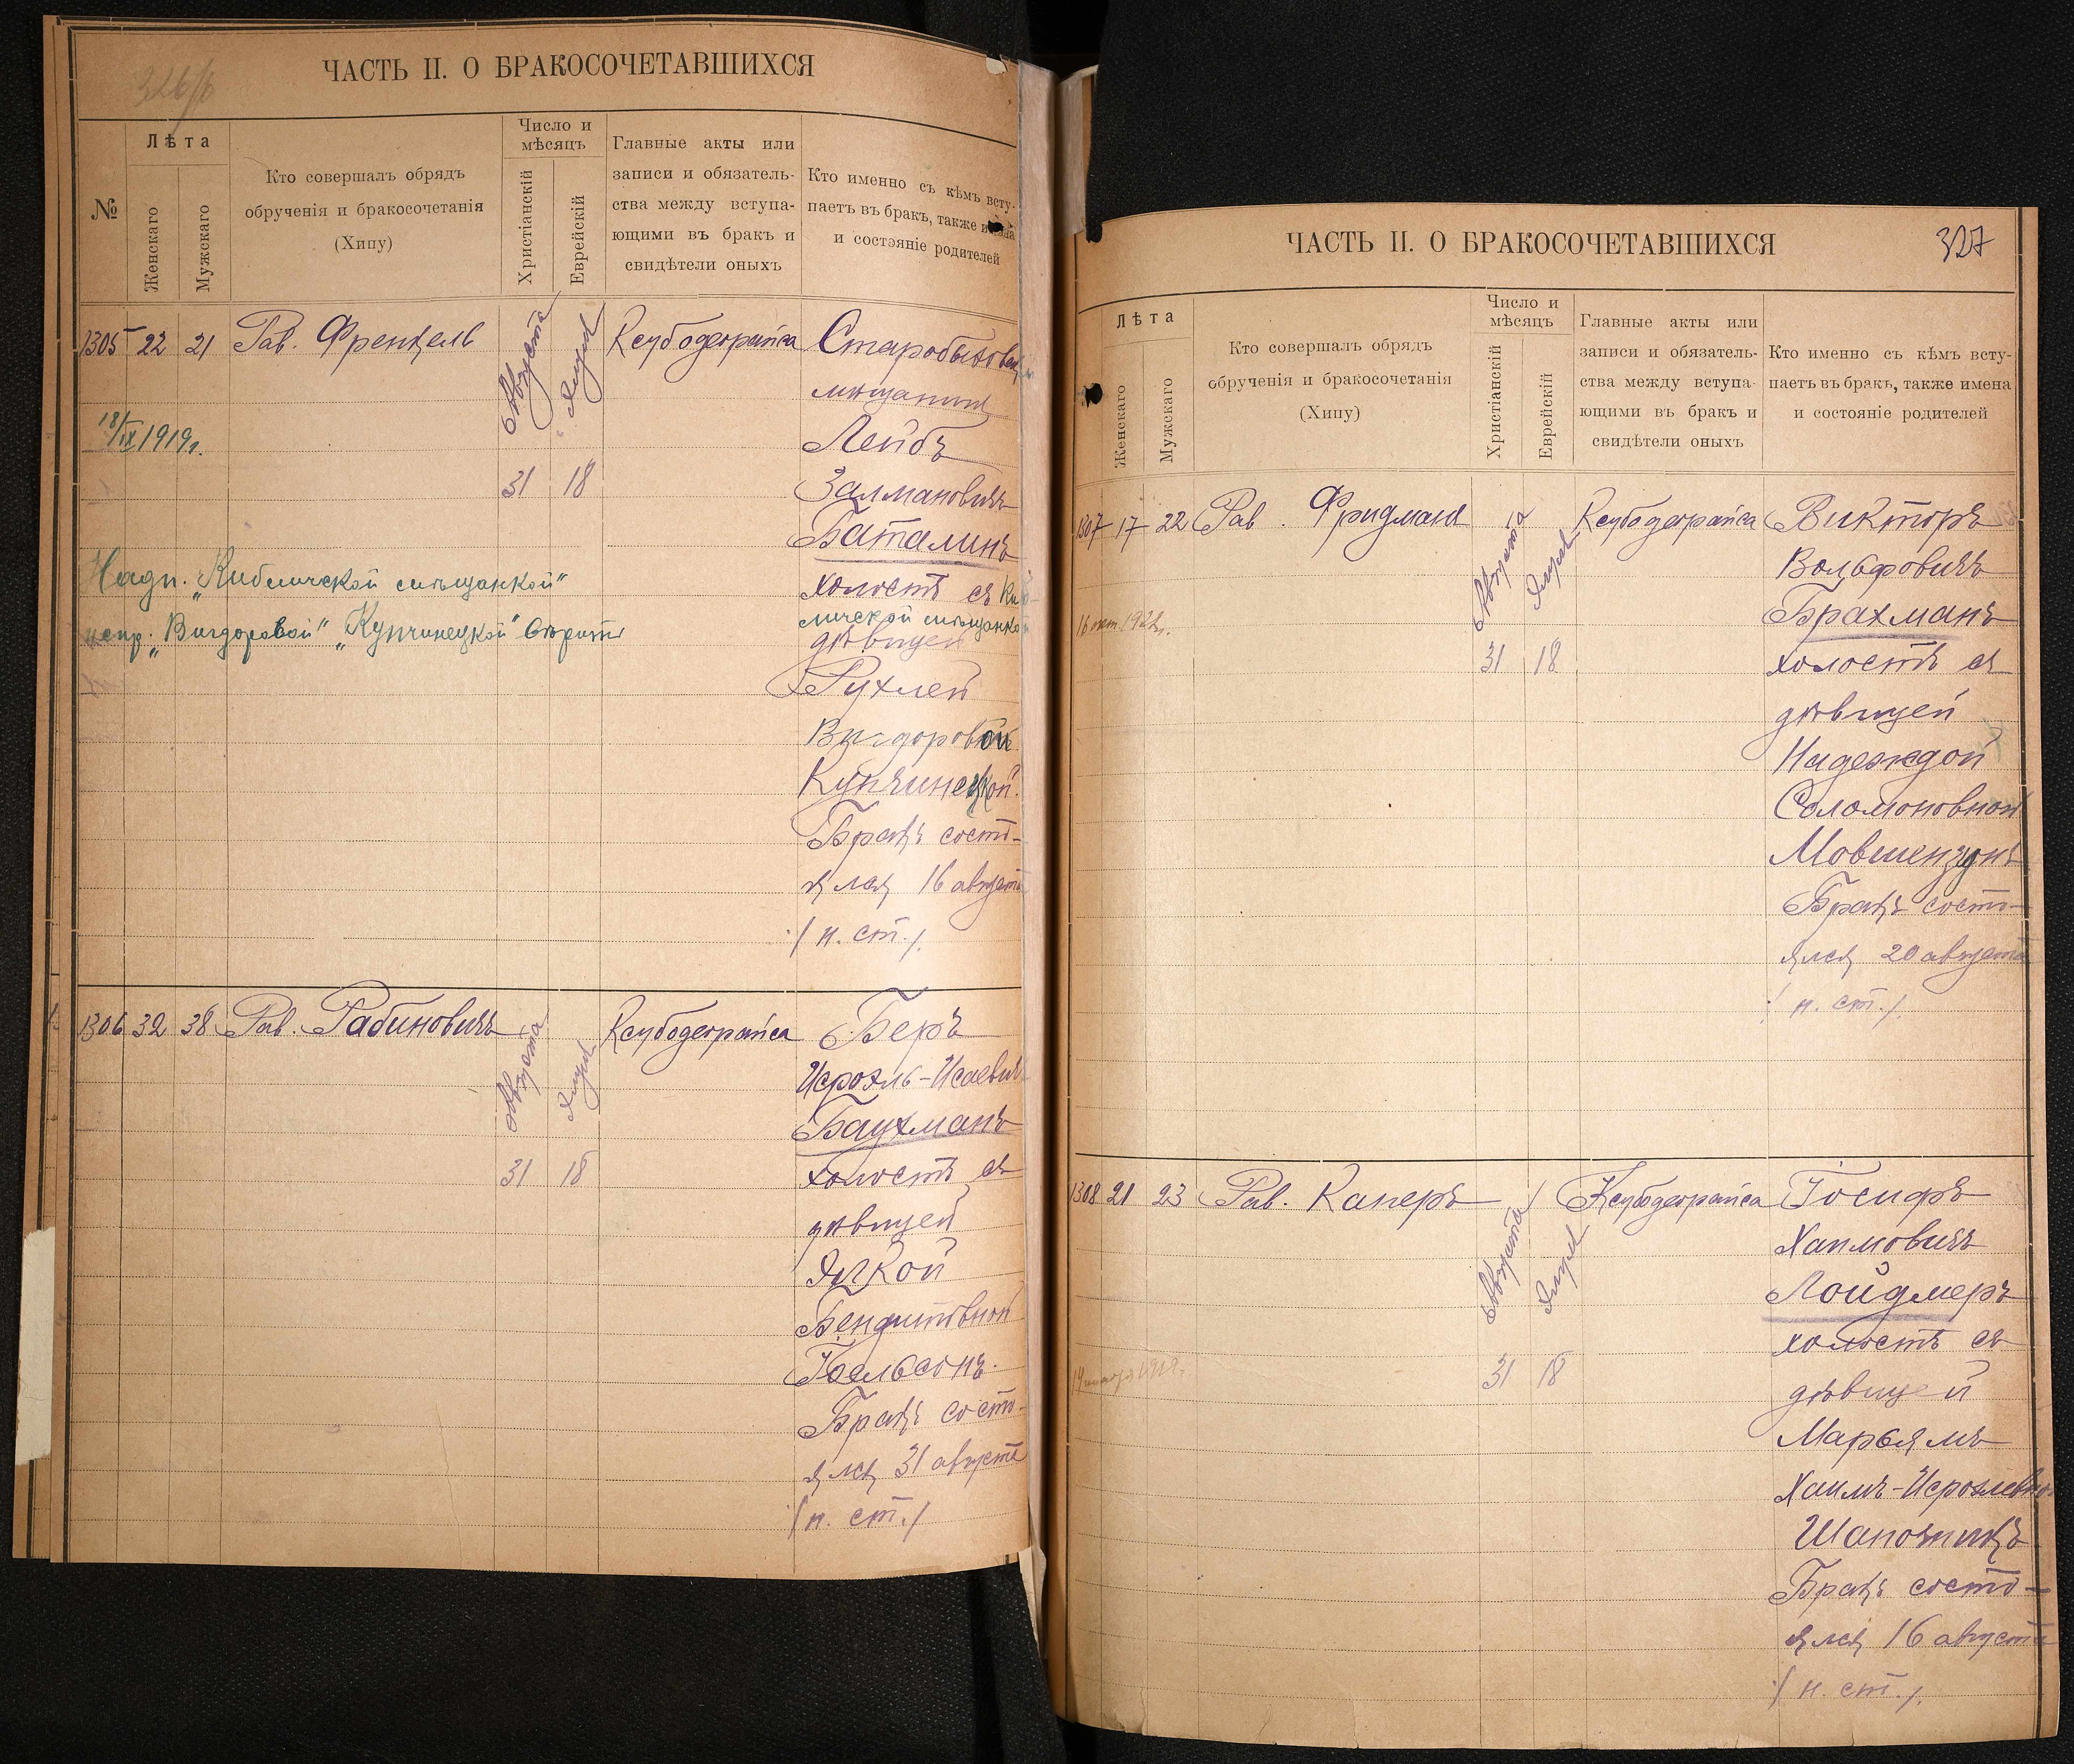 ЧАСТЬ II. О БРАКОСОЧЕТАВШИХСЯ
№
Лѣта
Женскаго
Мужскаго
Кто совершалъ обрядъ
обрученія и бракосочетанія
(Хипу)
Число и
мѣсяцъ
Христіанскій
Еврейскій
Главные акты или
записи и обязатель-
ства между вступа-
ющими въ бракъ и
свидѣтели оныхъ
Кто именно съ кѣмъ всту-
паетъ въ бракъ, также имена
и состояніе родителей
1305 22 21 Рав. Френкель
Августа 31
Элула 18
Ксубодеорайса
Старобыховск
мѣщанинъ
Лейбъ
Залмановичъ
Баталинъ
холостъ съ Куб-
личской мѣщанкой
дѣвицей
Рухлей
Вигдоровой
Купчинецкой.
Бракъ состо-
ялся 16 августа
/н. ст./.
18/IX 1919г.
Надп. „Кибличской мѣщанкой"
испр. „Вигдоровой" „Купчинецкой" вѣрить
1306 32 38 Рав. Рабиновичъ
Августа 31
Элула 18
Ксубодеорайса
Беръ
Исроэль-Исаевичъ
Баухманъ
холостъ съ
дѣвицей
Бендитовной
Іоельсонъ.
Бракъ состо-
ялся 31 августа
/н. ст./
ЧАСТЬ II. О БРАКОСОЧЕТАВШИХСЯ
327
Лѣта
Женскаго
Мужскаго
Кто совершалъ обрядъ
обрученія и бракосочетанія
(Хипу)
Число и
мѣсяцъ
Христіанскій
Еврейскій
Главные акты или
записи и обязатель-
ства между вступа-
ющими въ бракъ и
свидѣтели оныхъ
Кто именно съ кѣмъ всту-
паетъ въ бракъ, также имена
и состояніе родителей
1307 17 22 Рав. Фридманъ
Августа 31
Элула 18
Ксубодеорайса
Викторъ
Вольфовичъ
Брахманъ
холостъ съ
дѣвицей
Надеждой
Соломоновной
Мовшензонъ
Бракъ состо-
ялся 20 августа
/н. ст./.
16 окт 1922г.
1308 21 23 Рав. Каперъ
Августа 31
Элула 18
Ксубодеорайса
Іосифъ
Хаимовичъ
Лойдмеръ
холостъ съ
дѣвицей
Марьямъ
Хаимъ-Исроэлевно
Шапочникъ
Бракъ состо-
ялся 16 августа
/н. ст./.